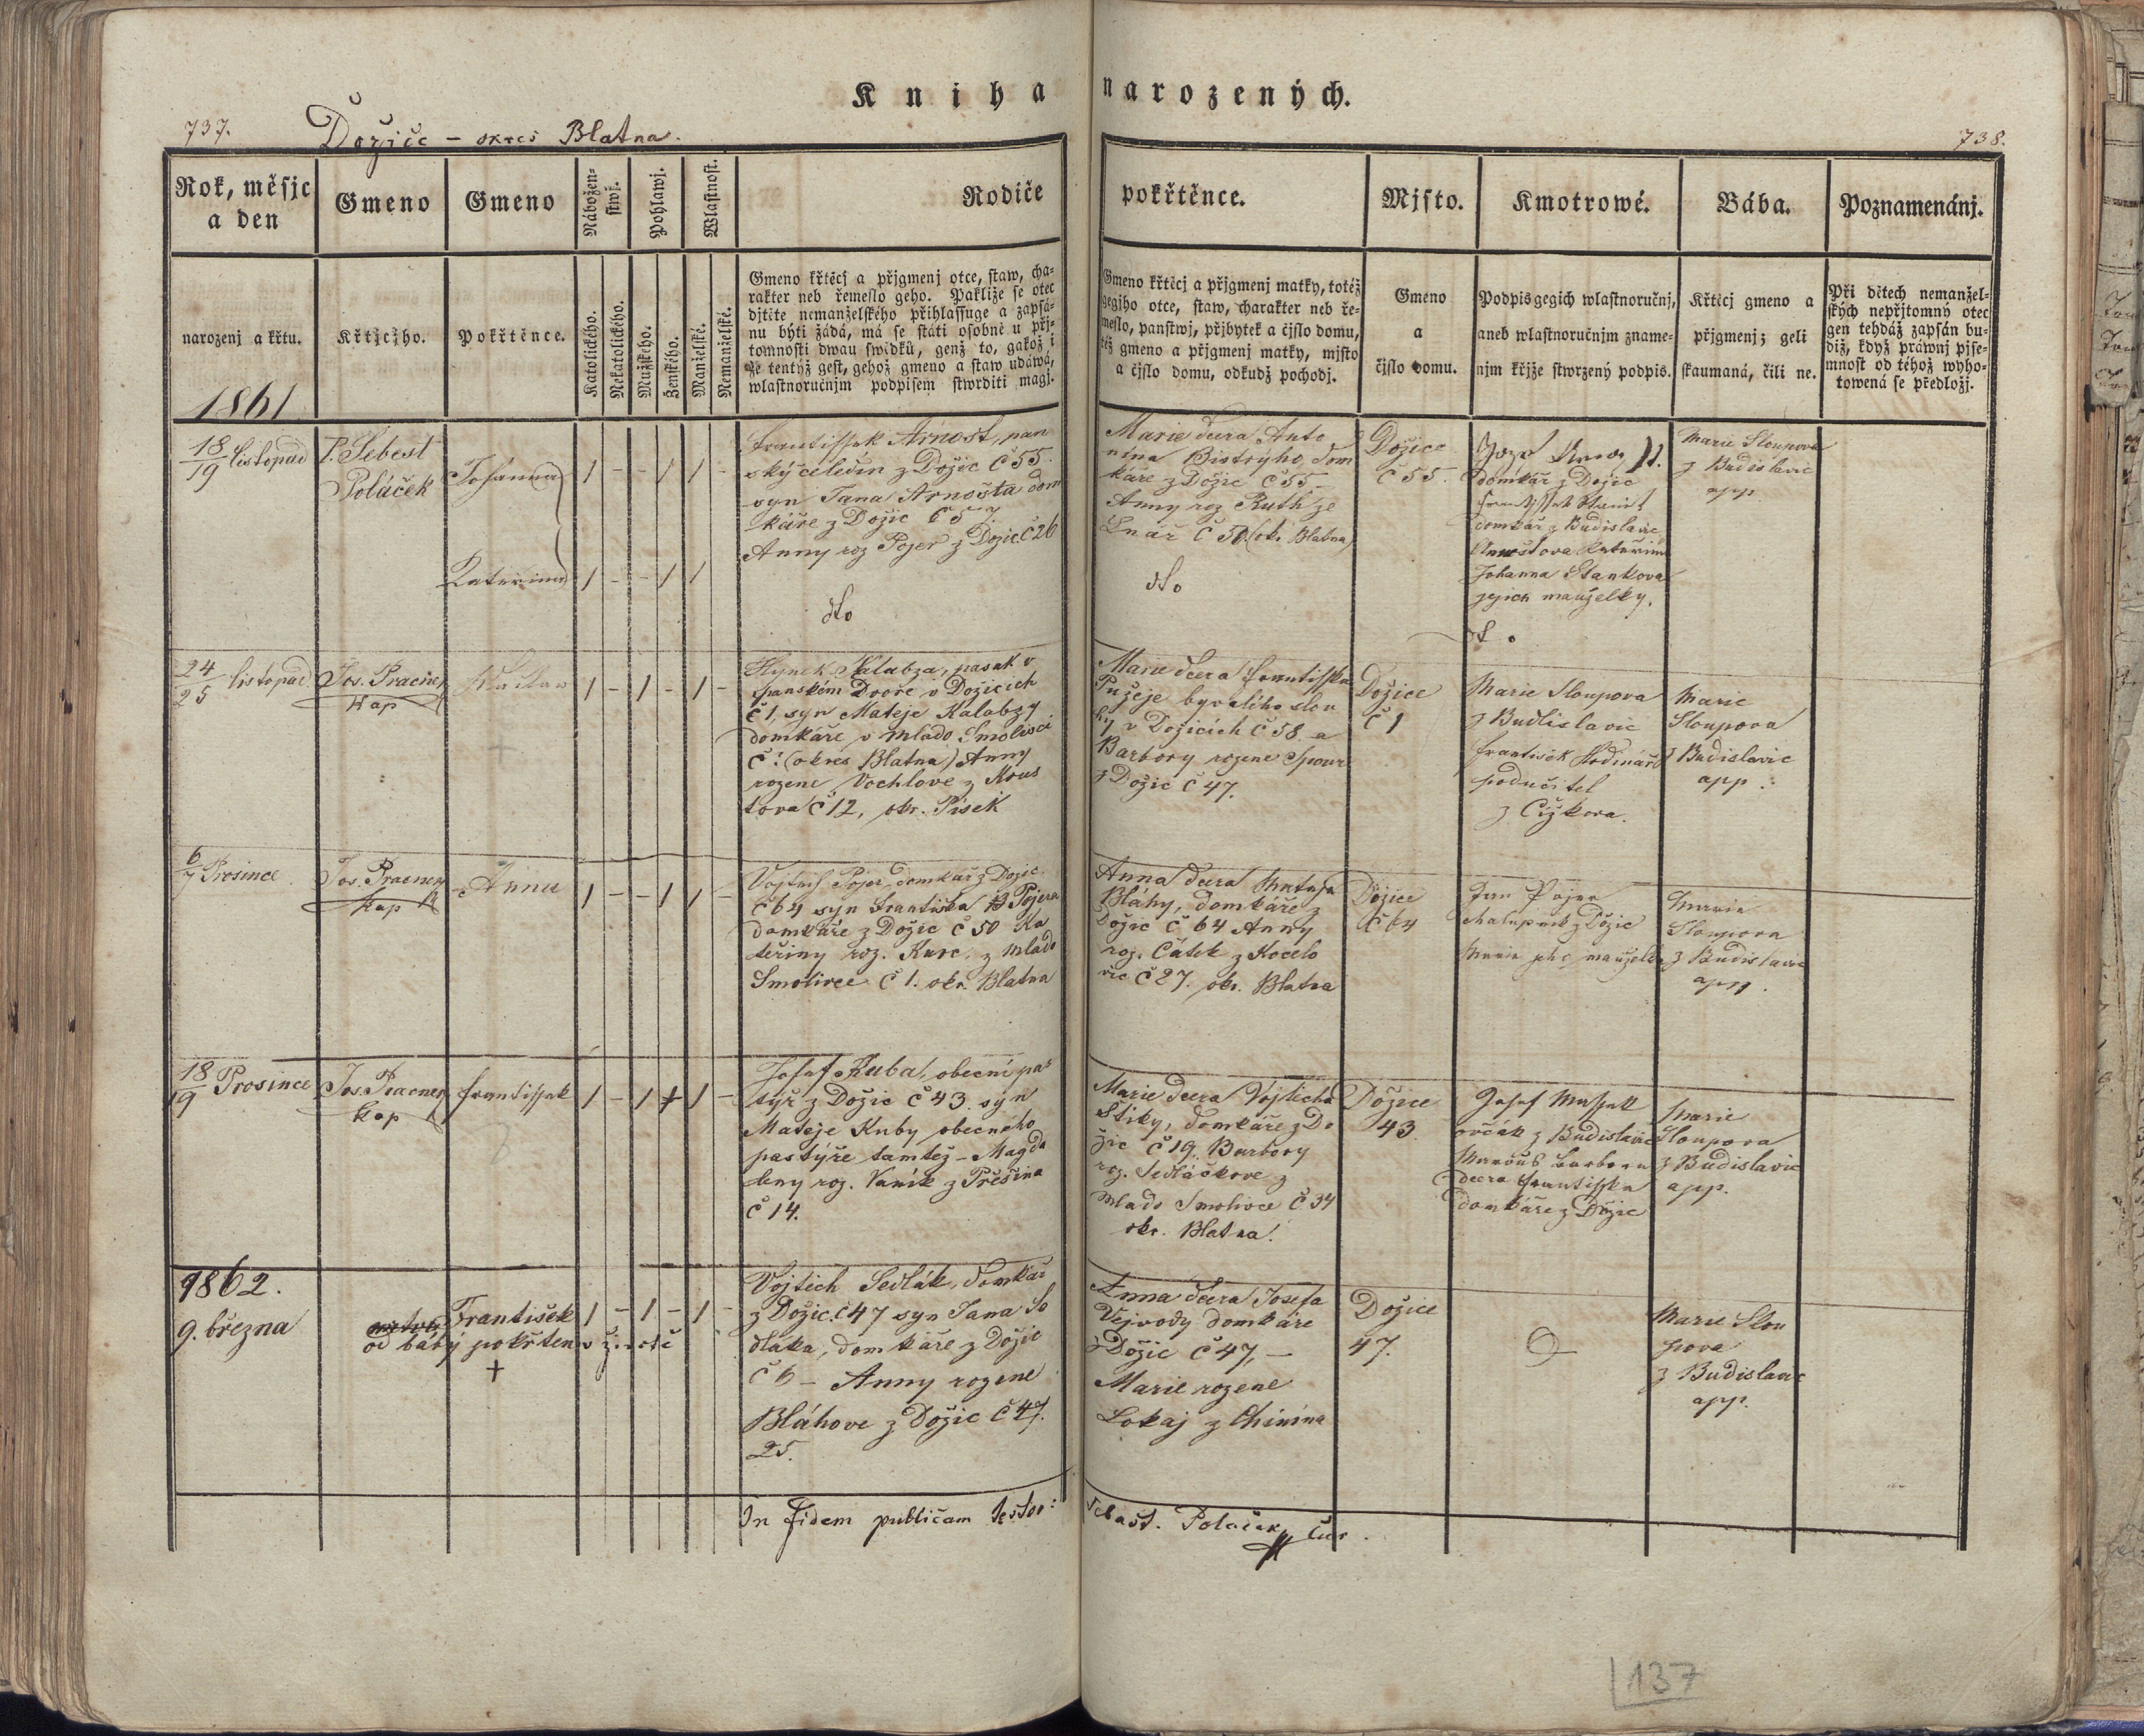 Kniha narozených.
737.
Dožice - okres Blatna.
738.
Rok, měsjc a den
Gmeno
Gmeno
Nábožen- stwj.
Pohlawj.
Wlastnost.
Rodiče
pokřtěnce.
Mjsto.
Kmotrowé.
Bába.
Poznamenánj.
narozenj a křtu.
Křtjcjho.
Pokřtěnce.
Katolického.
Nekatolického.
Mužského.
Ženského.
Manželské.
Nemanželské.
Gmeno křtěcj a přjgmenj otce, staw, cha-
rakter neb řemeslo geho. Pakliže se otec
djtěte nemanželského přihlassuge a zapsá-
nu býti žádá, má se státi osobně u přj-
tomnosti dwau swědků, genž to, gakož i
že tentýž gest, gehož gmeno a staw udáwá,
wlastnoručnjm podpisem stwrditi magj.
Gmeno křtěcj a přjgmenj matky, totéž
gegjho otce, staw, charakter neb ře-
meslo, panstwj, přjbytek a čjslo domu,
též gmeno a přjgmenj matky, mjsto
a čjslo domu, odkudž pocházj.
Gmeno
a
čjslo domu.
Podpis gegich wlastnoručnj,
aneb wlastnoručnjm zname-
njm křjže stwrzený podpis.
Křtěcj gmeno a
přjgmenj; geli
skaumaná, čili ne.
Při dětech nemanžel-
ských nepřjtomný otec
gen tehdáž zapsán bu-
diž, když práwnj pjse-
mnost od téhož wyho-
towená se předložj.
1861
18/19 listopad
P. Sebest
Poláček
Johanna
Kateřina
Frantissek Arnošt, pan
ský čeledin z Dožic č 55.
syn Jana Arnošta dom
káře z Dožic č 57.
Anny roz Pojer z Dožic č 26
dto
Marie dcera Anto
nína Bistrýho, dom
káře z Dožic č 55 -
Anny roz Ruth ze
Lnář č 50. (ok. Blatna)
dto
Dožice
č 55.
domkář z Dožic
domkář z Budislavic
Arnoštova Kateřina
Johanna Stankova
jejich manželky.
dto
Marie Sloupova
z Budislavic
app.
24/25 listopad
Jos. Pracner
kap
Václav
Hynek Kalabza, pasak v
panském Dvoře v Dožicích
č 1, syn Mateje Kalabzy
domkáře v Mlado Smolivci
č ? (okres Blatna) Anny
rozene Vochlove z Kous
tova č 12, okr. Písek
Marie dcera Frantisska
Pužeje byvalého slou
hy v Dožicích č 58 a
Barbory rozene Spour
z Dožic č 47.
Dožice
č 1
Marie Sloupova
z Budislavic
František Hodinář
podučitel
z Čížkova.
Marie
Sloupova
z Budislavic
app.
6/7 Prosince
Jos. Pracner
kap
Anna
Vojtech Pojer, domkář z Dožic
č 64 syn Františka Pojera
domkáře z Dožic č 50 Ka
teřiny roz. Kurc. z Mlado
Smolivce č 1. okr. Blatna
Anna dcera Mateja
Bláhy, domkáře z
Dožic č 64 Anny
roz. Čátek z Kocelo
vic č 27. okr. Blatna
Dožice
č 64
Jan Pojer
chalupnik z Dožic
Marie jeho manželka
Marie
Sloupova
z Budislavic
app.
18/19 Prosince
Jos. Pracner
kap
Frantissek
Josef Kuba, obecní pas
týř z Dožic č 43. syn
Mateje Kuby obecního
pastýře tamtéž - Magda
leny roz. Vaník z Přešina
č 14.
Marie dcera Vojticha
Stiky, domkáře z Do
žic č 19. Barbory
roz. Sedláčkove z
Mlado Smolivce č 34
okr. Blatna.
Dožice
43
Josef Massek
ovčák z Budislavic
Barbora
dcera Frantisska
domkáře z Dožic
Marie
Sloupova
z Budislavic
app.
1862.
9. března
František
od báby pokřten v životě
+
Vojtich Sedlák, domkář
z Dožic č 47 syn Jana Se
dláka, domkáře z Dožic
č 6 - Anny rozene
Bláhove z Dožic č 47.
25.
Anna dcera Josefa
Vejvody domkáře
z Dožic č 47, -
Marie rozene
Lokaj z Chinína
Dožice
47.
Marie Slou
pova
z Budislavic
app.
In fidem publicam testor:
Sebast. Polaček cur.
137